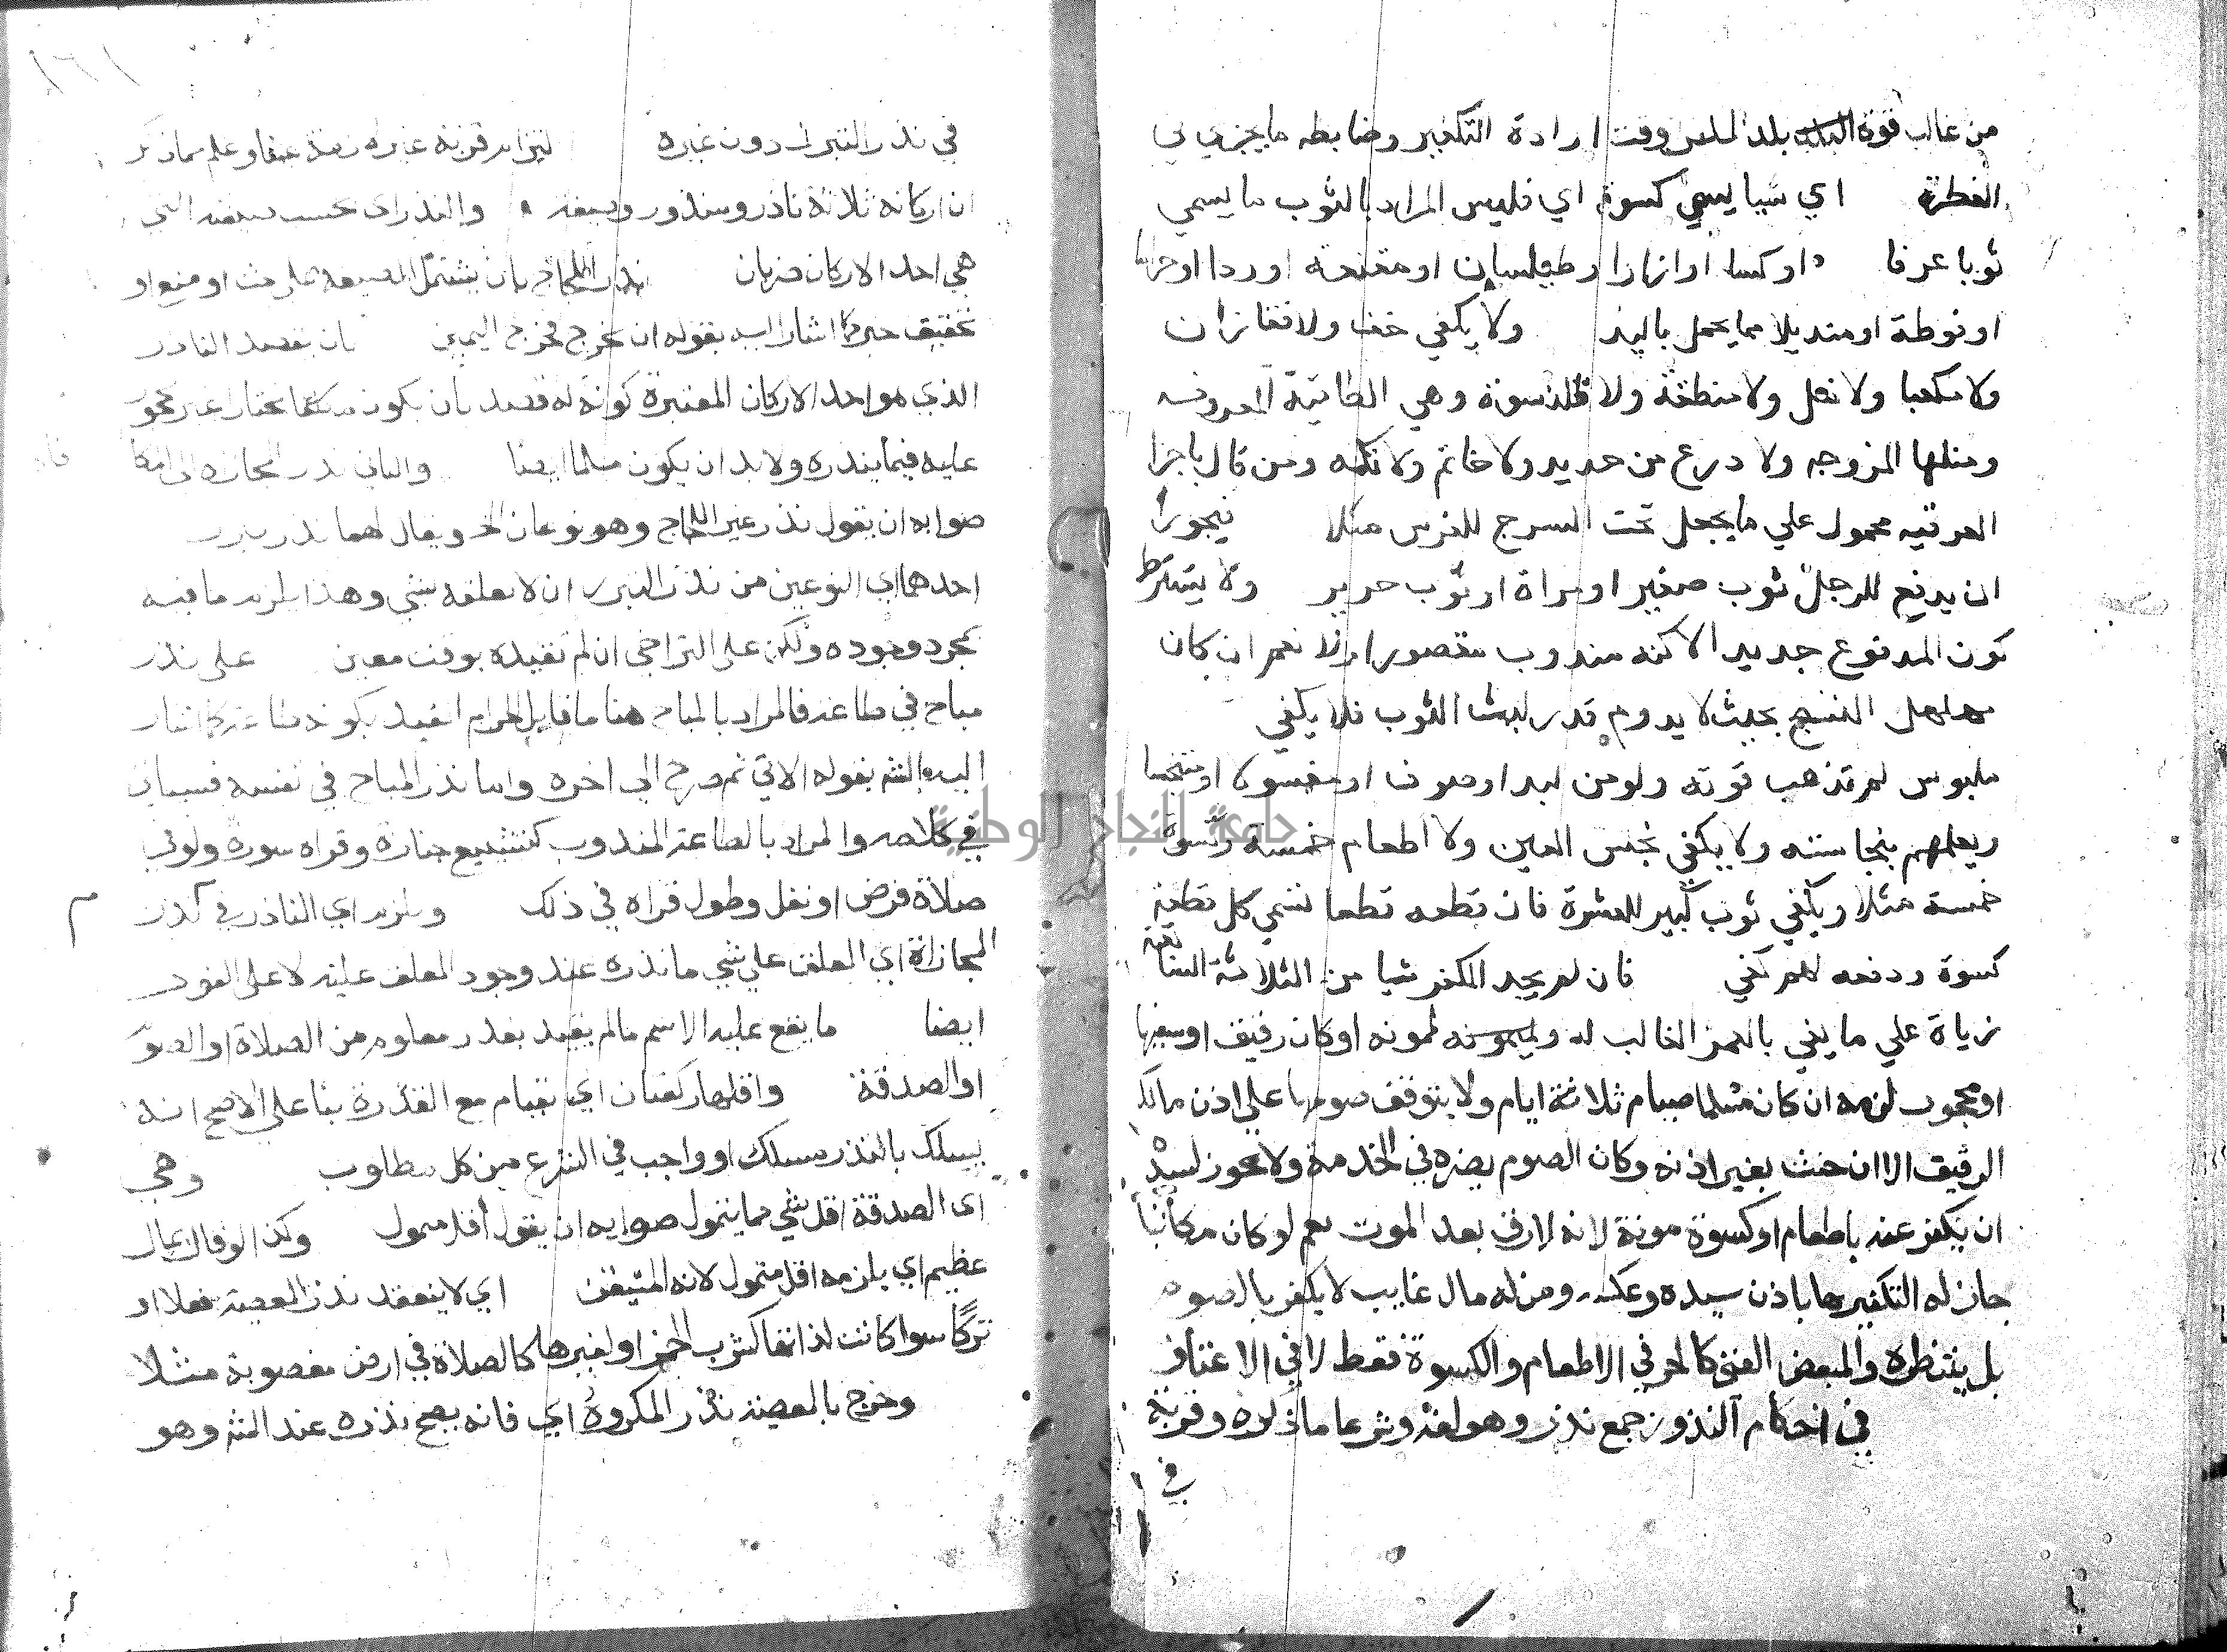 من غالب قوة بلد المكفر وقت ارادة التكفير وضابطه ما يجزي في
الفطرة اي شيا يسمي كسوة اي فليس المراد بالثوب ما يسمي
ثوبا عرفا او كسا او ازارا وطيلسان او مقنعة او ردا او
او فوطة او منديلا مما يحمل باليد ولا يكفي خف ولا قفازان
ولا مكعبا ولا نعل ولا منطقة ولا قلنسوة وهي الطاقية المعروفه
ومثلها المزوجه ولا درع من حديد ولا خاتم ولا تكه ومن قال باجزا
العرقيه محمول علي ما يجعل تحت السرج للفرس مثلا فيجوز
ان يدفع للرجل ثوب صغير او مراة او ثوب حرير ولا يشترط
كون المدفوع جديد الاكنه مندوب مقصورا اولا نعم ان كان
مهلهل النسج بحيث لا يدوم قدر لبث الثوب فلا يكفي
ملبوس لم تذهب قوته ولو من لبد او صوف او مغسولا او متنجسا
ويعلمهم بنجاسته ولا يكفي نجس العين ولا اطعام خمسة وكسوة
خمسة مثلا ويكفي ثوب كبير للعشرة فان قطعه قطعا تسمي كل قطعة
كسوة ودفعه لهم كفي فان لم يجد المكفر شيا من الثلاثة السابقة
زياة علي ما يفي بالعمر الغالب له ولممونه او كان رقيق او سفيها
او محجوب لزمه ان كان مسلما صيام ثلاثة ايام ولا يتوقف صومها علي اذن مالك
الرقيق الا ان حنث بغير اذنه وكان الصوم يضره في الخدمة ولا يجوز لسيد
ان يكفر عنه باطعام او كسوة موتة لانه لا رق بعد الموت نعم لو كان مكاتبا
جاز له التكفير بها باذن سيده وعكسه ومن له مال غايب لا يكفر بالصوم
بل ينتظره والمبعض الغني كالحر في الاطعام والكسوة فقط لا في الاعتاق
في احكام النذور جمع نذر وهو لغة وشرعا ما ذكره وقربة
في
في نذر التبرر دون غيره التزام قربة غير لازمة
ان اركانه ثلاثة ناذر ومنذور وصيغه والنذر اي بحسب صيغته التي
هي احد الاركان ضربان نذر اللجاج بان يشتمل الصيغة على حث او منع او
تحقيق خبر كما اشار اليه بقوله ان يخرج مخرج اليمين بان يقصد الناذر
الذي هو احد الاركان المعتبرة كونه له قصد بان يكون مكلفا مختارا غير محجور
عليه فيما ينذره ولا بد ان يكون مسلما ايضا والثاني نذر المجازاة
صوابه ان يقول نذر غير اللجاج وهو نوعان الخ ويقال لهما نذر تبرر
احدهما اي النوعين من نذر التبرر ان لا يعلقه بشي وهذا يلزمه ما فيه
بمجرد وجوده ولكن على التراخي ان لم تقيده بوقت معين على نذر
مباح في طاعة فالمراد بالمباح هنا ما قابل الحرام
اليه الشم بقوله الاتي ثم صرح الي اخره واما نذر المباح في نفسه فسياتي
في كلامه والمراد بالطاعة المندوب كتشييع جنازة وقراه سورة
صلاة فرض او نفل وطول قراه في ذلك ويلزمه اي الناذر في
المجازاة اي المعلق علي شي ما نذره عند وجود المعلق عليه لا على الفور
ايضا ما يقع عليه الاسم ما لم يقيد بقدر معلوم من الصلاة او الصوم
او الصدقة واقلها ركعتان اي بقيام مع القدرة بنا على الاصح انه
يسلك بالنذر مسلك او واجب في الشرع من كل مطلوب وهي
اي الصدقة اقل شي مما يتمول صوابه ان يقول اقل متمول وكذا لو قال بمال
عظيم اي يلزمه اقل متمول لانه المتيقن اي لا ينعقد نذر المعصية فعلا او
تركا سوا كانت لذاتها كشرب الخمر او لغيرها كالصلاة في ارض مغصوبة مثلا
وخرج بالمعصية نذر المكروه اي فانه يصح نذره عند الشم وهو
جامعة النجاح الوطنية